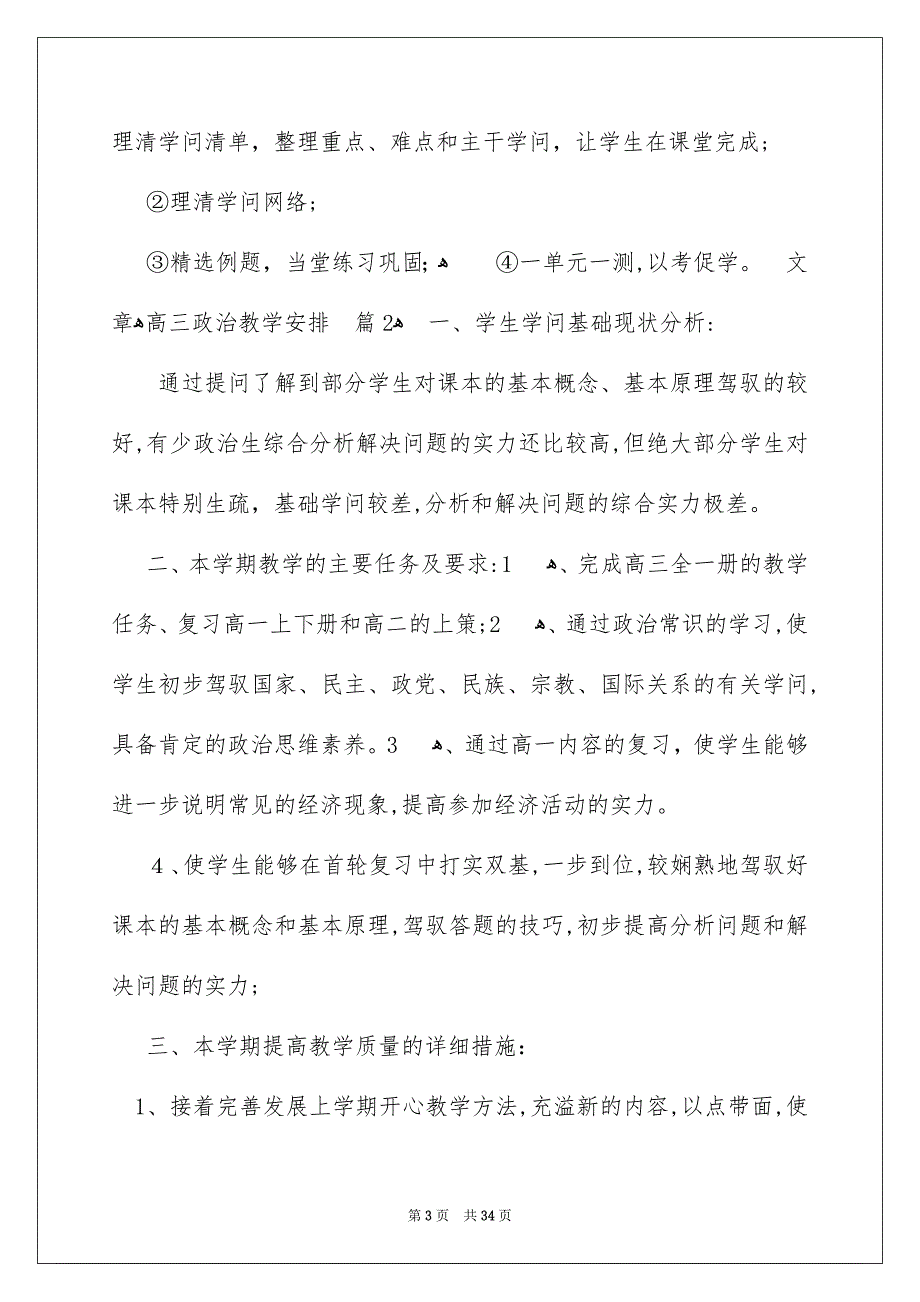 理清学问清单，整理重点、难点和主干学问，让学生在课堂完成;
②理清学问网络;
③精选例题，当堂练习巩固; ﻫ ④一单元一测,以考促学。 文
章ﻫ高三政治教学安排 篇2ﻫ 一、学生学问基础现状分析:
通过提问了解到部分学生对课本的基本概念、基本原理驾驭的较
好,有少政治生综合分析解决问题的实力还比较高,但绝大部分学生对
课本特别生疏，基础学问较差,分析和解决问题的综合实力极差。
二、本学期教学的主要任务及要求:1 ﻫ、完成高三全一册的教学
任务、复习高一上下册和高二的上策;2 ﻫ、通过政治常识的学习,使
学生初步驾驭国家、民主、政党、民族、宗教、国际关系的有关学问,
具备肯定的政治思维素养。3 ﻫ、通过高一内容的复习，使学生能够
进一步说明常见的经济现象,提高参加经济活动的实力。
4、使学生能够在首轮复习中打实双基,一步到位,较娴熟地驾驭好
课本的基本概念和基本原理,驾驭答题的技巧,初步提高分析问题和解
决问题的实力;
三、本学期提高教学质量的详细措施：
1、接着完善发展上学期开心教学方法,充溢新的内容,以点带面,使
第 3 页 共 34 页